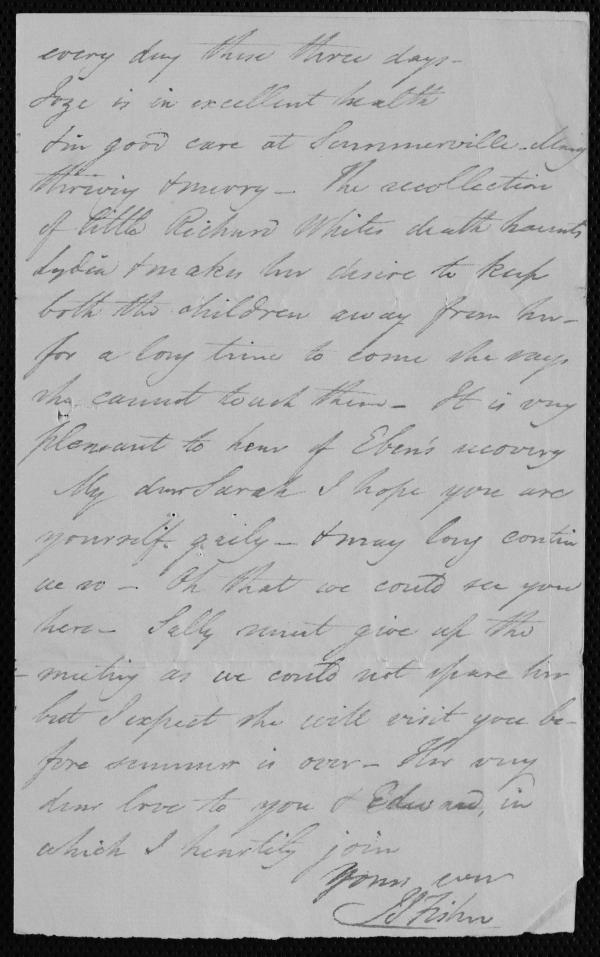 every day these three days -
Joze is in excellent health
& in good care at Summerville - Mary
thriving & merry - The recollection
of little Richard Whites death haunts
Lydia & makes her desire to keep
both the children away from her -
for a long time to come she says
she cannot touch them - It is very
pleasant to hear of Eben's recovery
My dear Sarah I hope you are
yourself gaily - & may long contin
ue so - Oh that we could see you
here - Sally must give up the
meeting as we could not spare her
but I expect she will visit you be-
fore summer is over - Her very
dear love to you & Edward, in
which I heartily join
Yours ever
Fisher